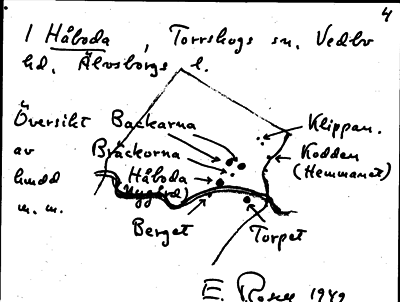 4
I Håboda, Torrskogs sn. Vedbo
hd. Älvsborgs l.
Översikt
av
m. m.
Backarna
Bräckorna
Håboda
(Nygård)
Berget
Klippan.
Kodden
(Hemmanet)
Torpet
E. 1949